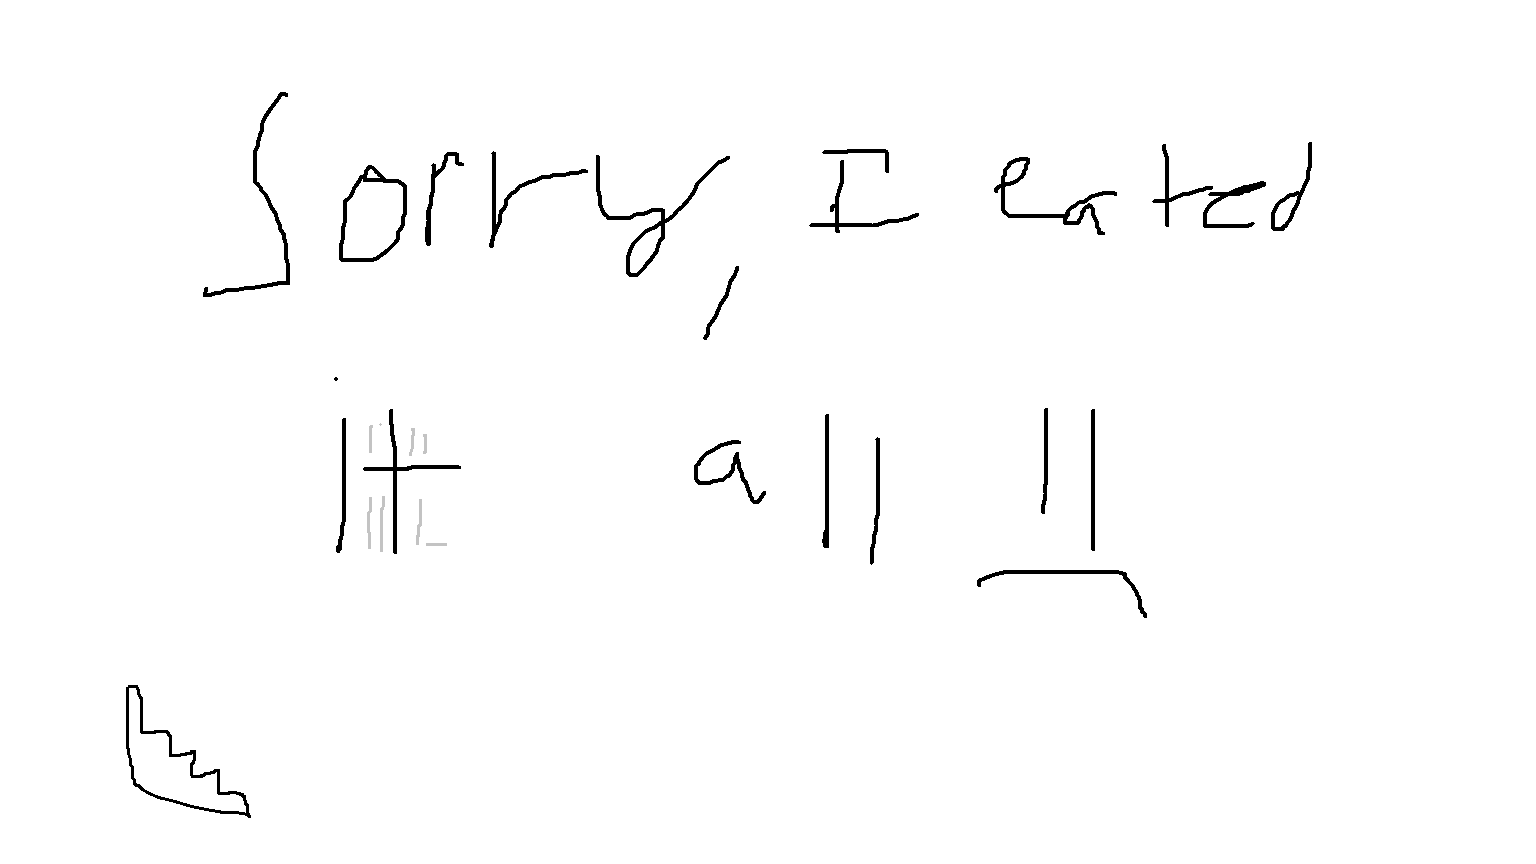 Sorry, I eated
it all